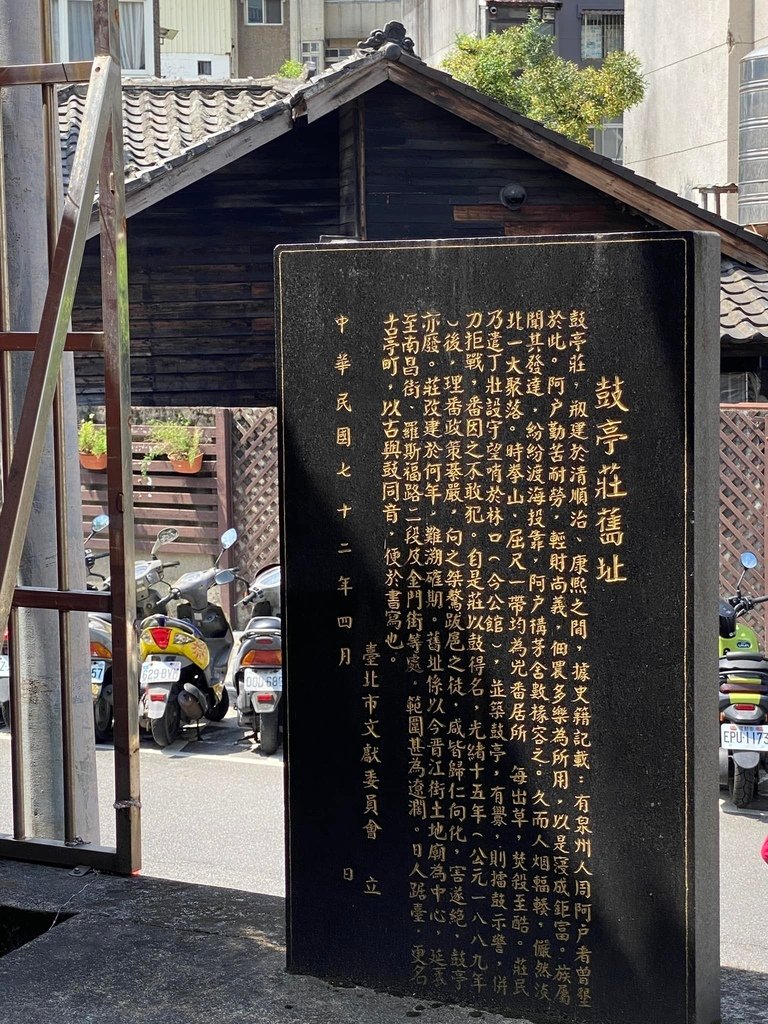 鼓亭莊舊址
鼓亭莊，刱建於清順治、康熙之間，據史籍記載：有泉州人周阿户者曾墾
於此。阿户勤苦耐勞，輕財尚義，佃農多樂為所用，以是寖成鉅富。族屬
聞其發達，紛紛渡海投靠，阿户構茅舍數椽容之。久而人烟輻輳，儼然淡
北一大聚落。時拳山、屈尺一帶均為兇番居所，每出草，焚殺至酷。莊民
乃遣丁壯設守望哨於林口（今公館），並築鼓亭，有釁，則擂鼓示警，併
力拒戰，番因之不敢犯。自是莊以鼓得名，光緒十五年（公元一八八九年
）後，理番政策綦嚴，向之桀驁跋扈之徒，咸皆歸仁向化，害遂絕，鼓亭
亦廢。莊改建於何年，難溯確期。舊址係以今晉江街土地廟為中心，延袤
至南昌街、羅斯福路二段及金門街等處，範圍甚為遼濶。日人踞臺，更名
古亭町，以古與鼓同音，便於書寫也。
臺北市文獻委員會 立
中華民國七十二年四月 日
57
EPU-1173